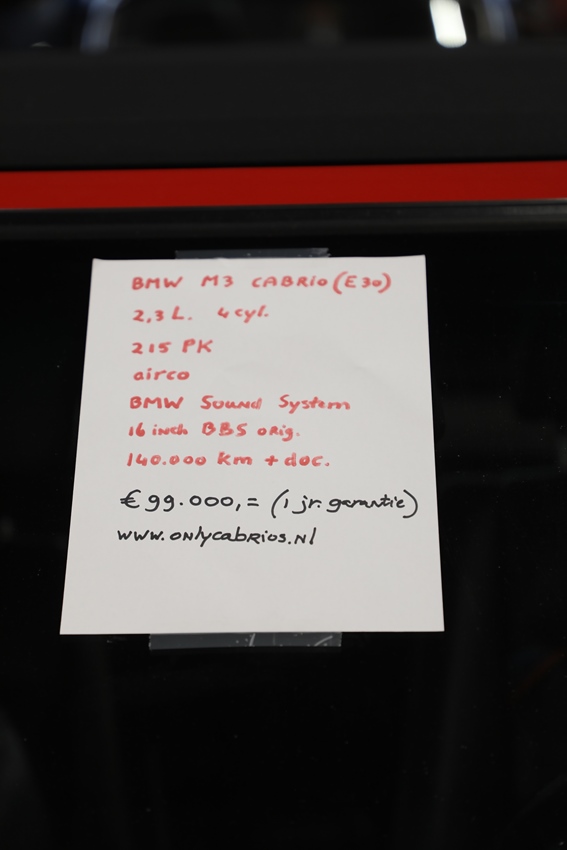 BMW M3 CABRIO (E30)
2,3 L. 4 cyl.
215 PK
airco
BMW Sound System
16 inch BBS orig.
140.000 km + doc.
€ 99.000,= (1 jr. garantie)
www.onlycabrios.nl